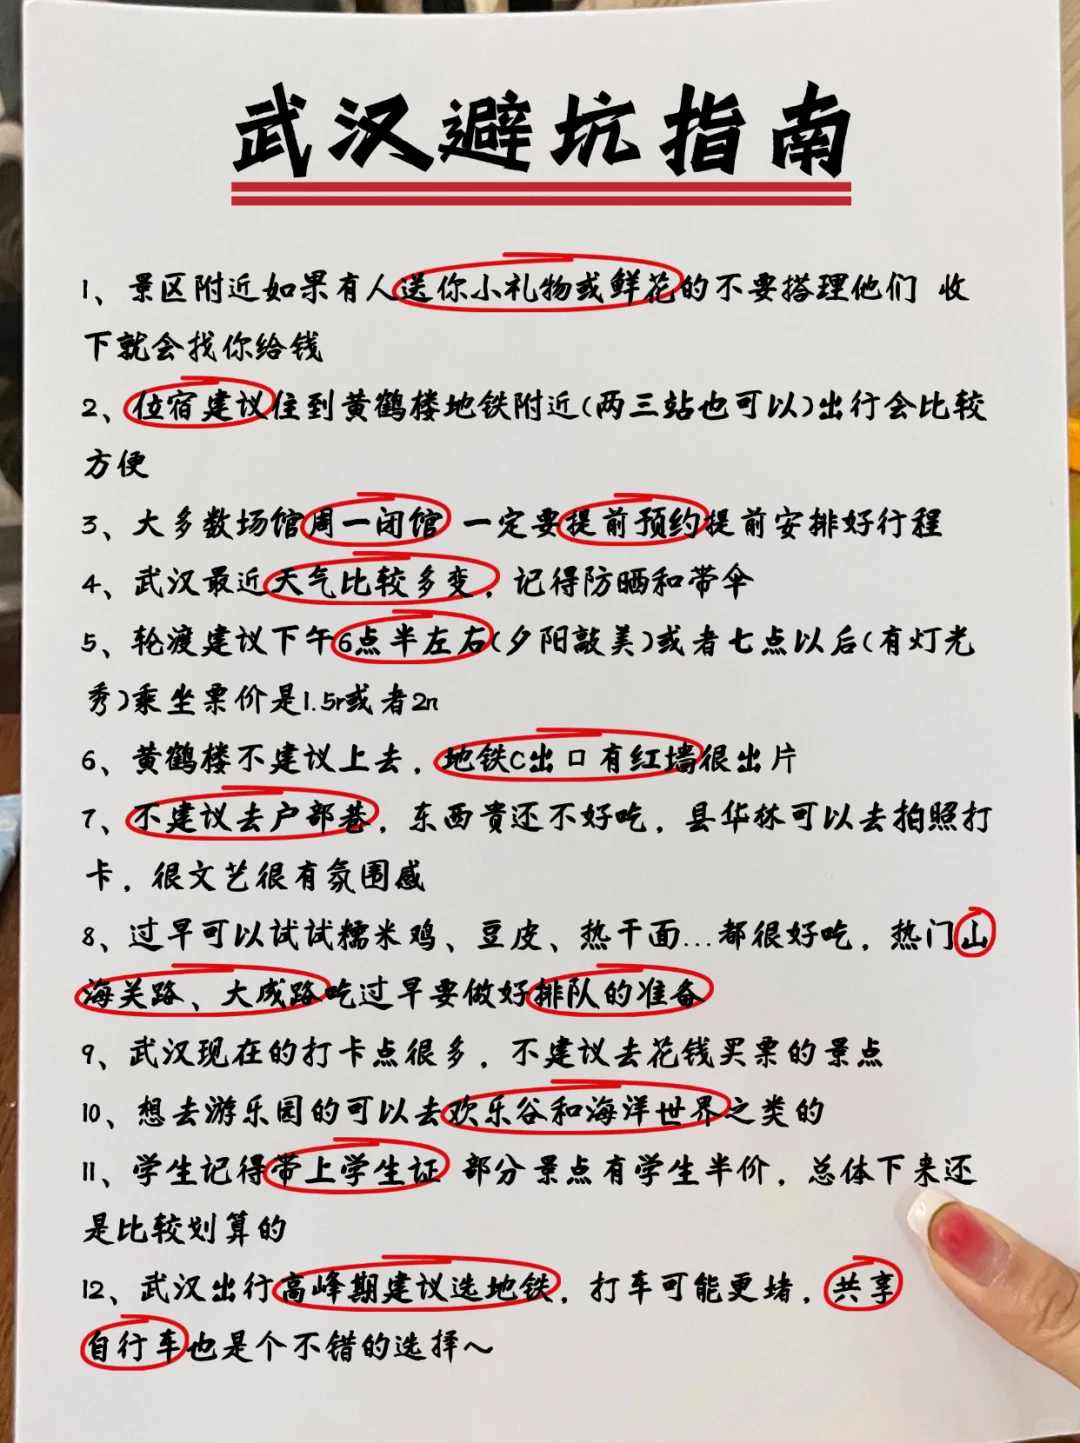 武汉避坑指南
1、景区附近如果有人送你小礼物或鲜花的不要搭理他们 收
下就会找你给钱
2、位宿建议住到黄鹤楼地铁附近(两三站也可以)出行会比较
方便
3、大多数场馆周一闭馆 一定要提前预约提前安排好行程
4、武汉最近天气比较多变，记得防晒和带伞
5、轮渡建议下午6点半左右(夕阳敲美)或者七点以后(有灯光
秀)乘坐票价是1.5r或者2n
6、黄鹤楼不建议上去，地铁C出口有红墙很出片
7、不建议去户部巷，东西贵还不好吃，县华林可以去拍照打
卡，很文艺很有氛围感
8、过早可以试试糯米鸡、豆皮、热干面...都很好吃，热门山
海关路、大成路吃过早要做好排队的准备
9、武汉现在的打卡点很多，不建议去花钱买票的景点
10、想去游乐园的可以去欢乐谷和海洋世界之类的
11、学生记得带上学生证 部分景点有学生半价，总体下来还
是比较划算的
12、武汉出行高峰期建议选地铁，打车可能更堵，共享
自行车也是个不错的选择~